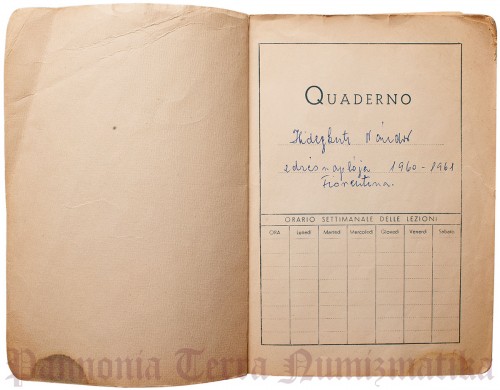 QUADERNO
Hidegkuti Nándor
edzésnaplója 1960-1961
Fiorentina.
ORARIO SETTIMANALE DELLE LEZIONI
ORA Lunedì Martedì Mercoledì Giovedì Venerdì Sabato
Pannonia Terra Numizmatika